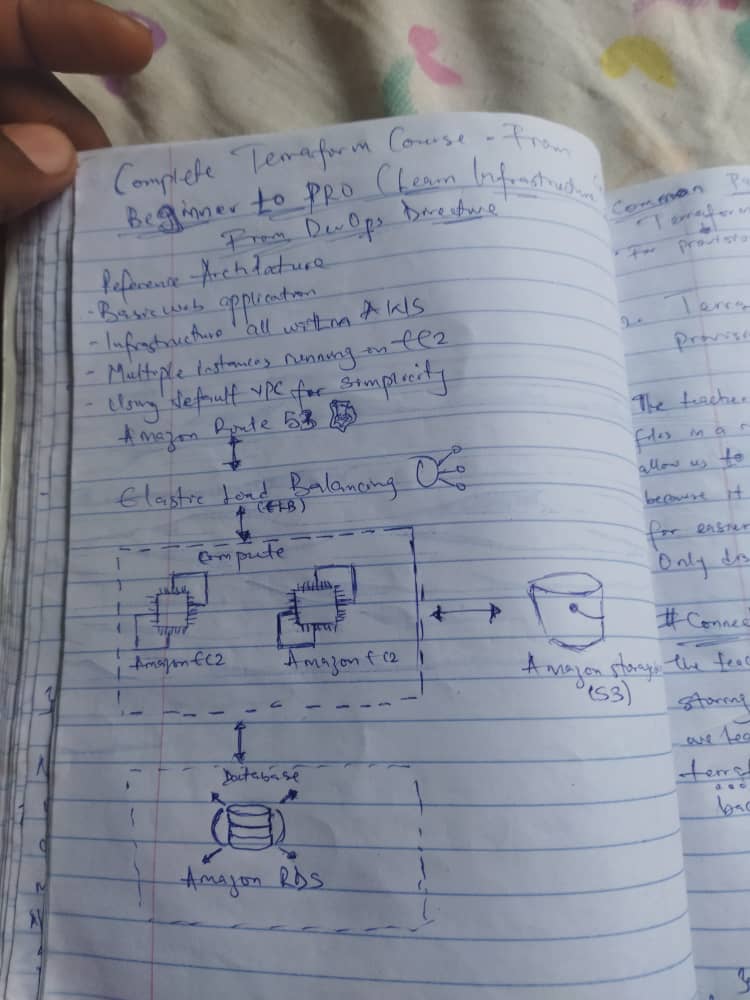 Complete Terraform Course - From
Beginner to PRO (Learn Infrastructure
From DevOps Directive
Reference Architecture
- Basic web application
- Infrastructure all within AWS
- Multiple instances running on EC2
- Using default VPC for simplicity
Amazon Route 53
Elastic Load Balancing
(ELB)
Compute
Amazon EC2
Amazon EC2
Amazon storage
(S3)
Database
Amazon RDS
Common
Terraform
For provisio
2. Terra
provisio
The teache
files in a
allow us to
because it
for easier
Only dis
# Connec
the tea
storing
are
terraf
bac